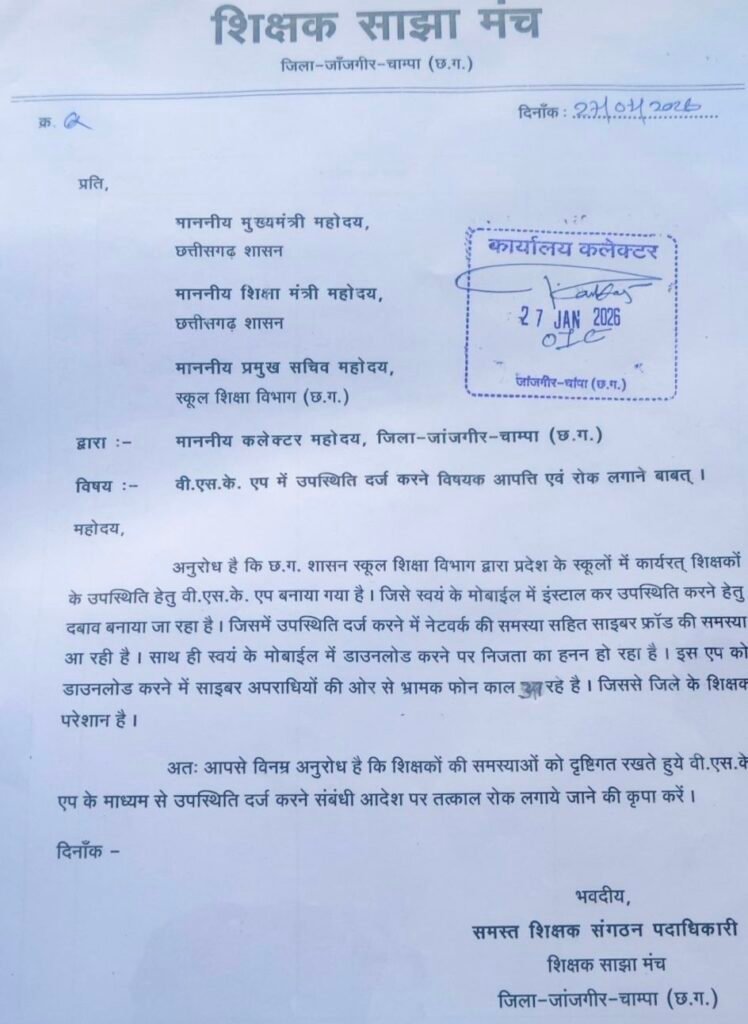 शिक्षक साझा मंच
जिला-जाँजगीर-चाम्पा (छ.ग.)
क्र.
दिनाँक : 27/01/2026
प्रति,
माननीय मुख्यमंत्री महोदय,
छत्तीसगढ़ शासन
माननीय शिक्षा मंत्री महोदय,
छत्तीसगढ़ शासन
माननीय प्रमुख सचिव महोदय,
स्कूल शिक्षा विभाग (छ.ग.)
कार्यालय कलेक्टर
27 JAN 2026
OIC
जांजगीर-चांपा (छ.ग.)
द्वारा :- माननीय कलेक्टर महोदय, जिला-जांजगीर-चाम्पा (छ.ग.)
विषय :- वी.एस.के. एप में उपस्थिति दर्ज करने विषयक आपत्ति एवं रोक लगाने बाबत् ।
महोदय,
अनुरोध है कि छ.ग. शासन स्कूल शिक्षा विभाग द्वारा प्रदेश के स्कूलों में कार्यरत् शिक्षकों
के उपस्थिति हेतु वी.एस.के. एप बनाया गया है । जिसे स्वयं के मोबाईल में इंस्टाल कर उपस्थिति करने हेतु
दबाव बनाया जा रहा है । जिसमें उपस्थिति दर्ज करने में नेटवर्क की समस्या सहित साइबर फ्रॉड की समस्या
आ रही है । साथ ही स्वयं के मोबाईल में डाउनलोड करने पर निजता का हनन हो रहा है । इस एप को
डाउनलोड करने में साइबर अपराधियों की ओर से भ्रामक फोन काल आ रहे है । जिससे जिले के शिक्षक
परेशान है ।
अतः आपसे विनम्र अनुरोध है कि शिक्षकों की समस्याओं को दृष्टिगत रखते हुये वी.एस.के
एप के माध्यम से उपस्थिति दर्ज करने संबंधी आदेश पर तत्काल रोक लगाये जाने की कृपा करें ।
दिनाँक -
भवदीय,
समस्त शिक्षक संगठन पदाधिकारी
शिक्षक साझा मंच
जिला-जांजगीर-चाम्पा (छ.ग.)